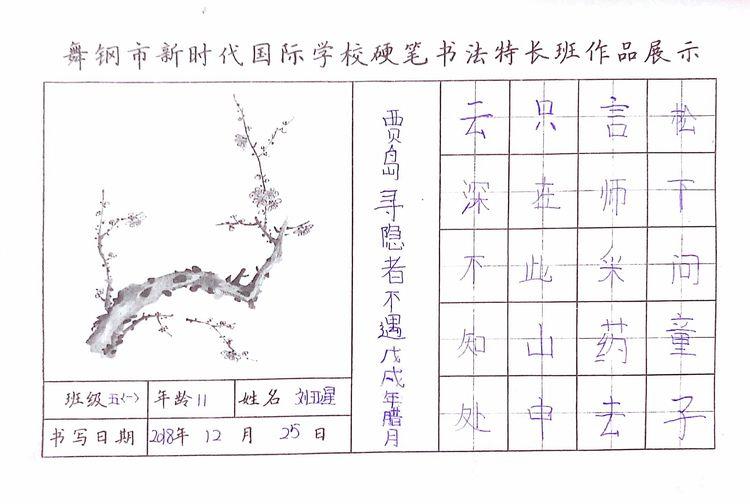 舞钢市新时代国际学校硬笔书法特长班作品展示
松下问童子
言师采药去
只在此山中
云深不知处
贾岛寻隐者不遇戊戌年腊月
班级 五(一) 年龄 11 姓名 刘亚星
书写日期 2018年 12 月 25 日